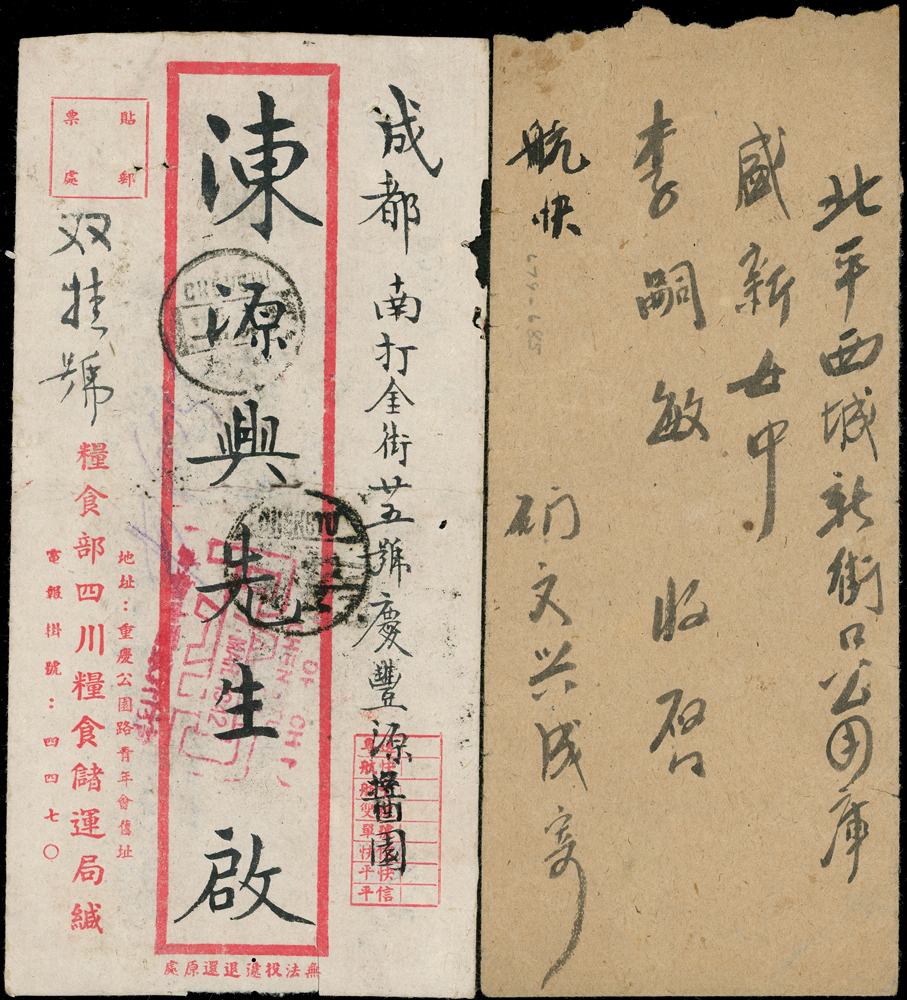 成都南打金街廿五號慶豐源醬園
陳源興先生啟
双挂號
貼郵
票處
糧食部四川糧食儲運局緘
地址：重慶公園路青年會舊址
電報掛號：四四七〇
無法投遞退還原處
CHENGTU
平信
北平西城新街口公用庫
盛新女中
李嗣敏 收启
航快
文兴成寄